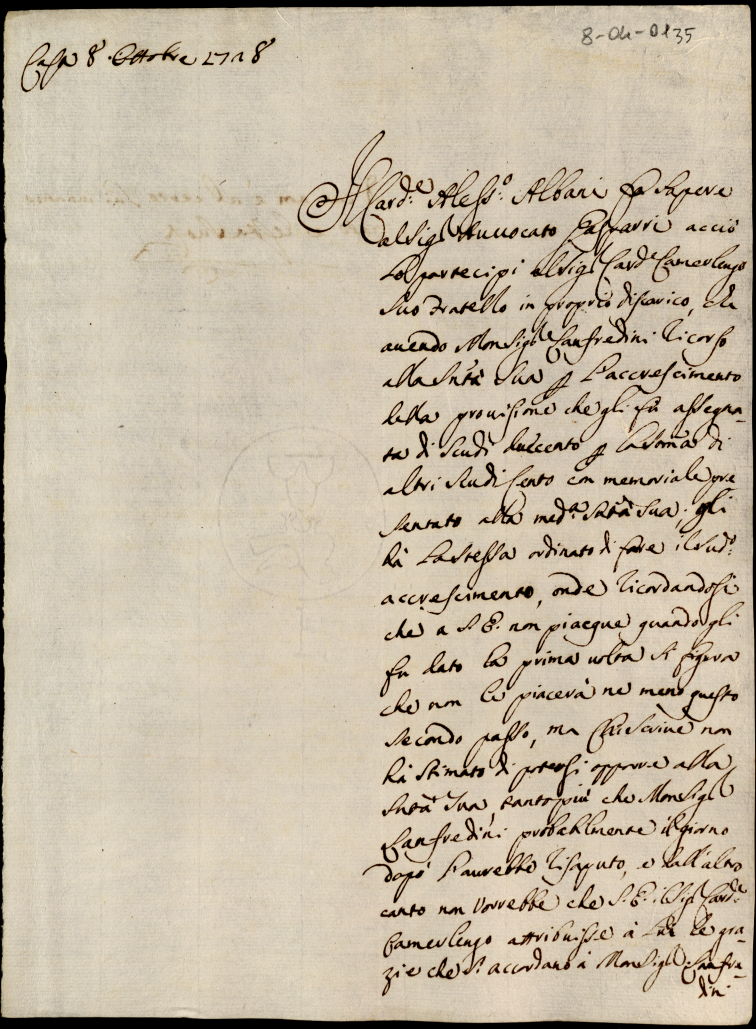 8-04-0135
Casa 8 Ottobre 1728
Il Card.e Aless.o Albani fa sapere
al Sig.r Avvocato Gasparri acciò
lo partecipi al Sig.r Card.e Camerlengo
suo Fratello in proprio discarico, che
avendo Monsig.r Lanfredini ricorso
alla S.ntà Sua p l'accrescimento
della provisione che gli fu assegna-
ta di Scudi duecento p la stima di
altri Scudi Cento con memoriale pre
sentato alla med.a S.ntà Sua, gli
hà la stessa ordinato di fare il sud.o
accrescimento, onde ricordandosi
che a S. E. non piacque quando gli
fu dato la prima volta si figura
che non le piacerà ne meno questo
secondo passo, ma chi scrive non
hà stimato di potersi opporre alla
S.ntà Sua, tanto più che Monsig.r
Lanfredini probabilmente il giorno
dopo l'averebbe risaputo, e dall'altro
canto non vorrebbe che S. E. il Sig.r Card.e
Camerlengo attribuisse à Lui le gra-
zie che si accordano à Monsig.r Lanfre-
dini